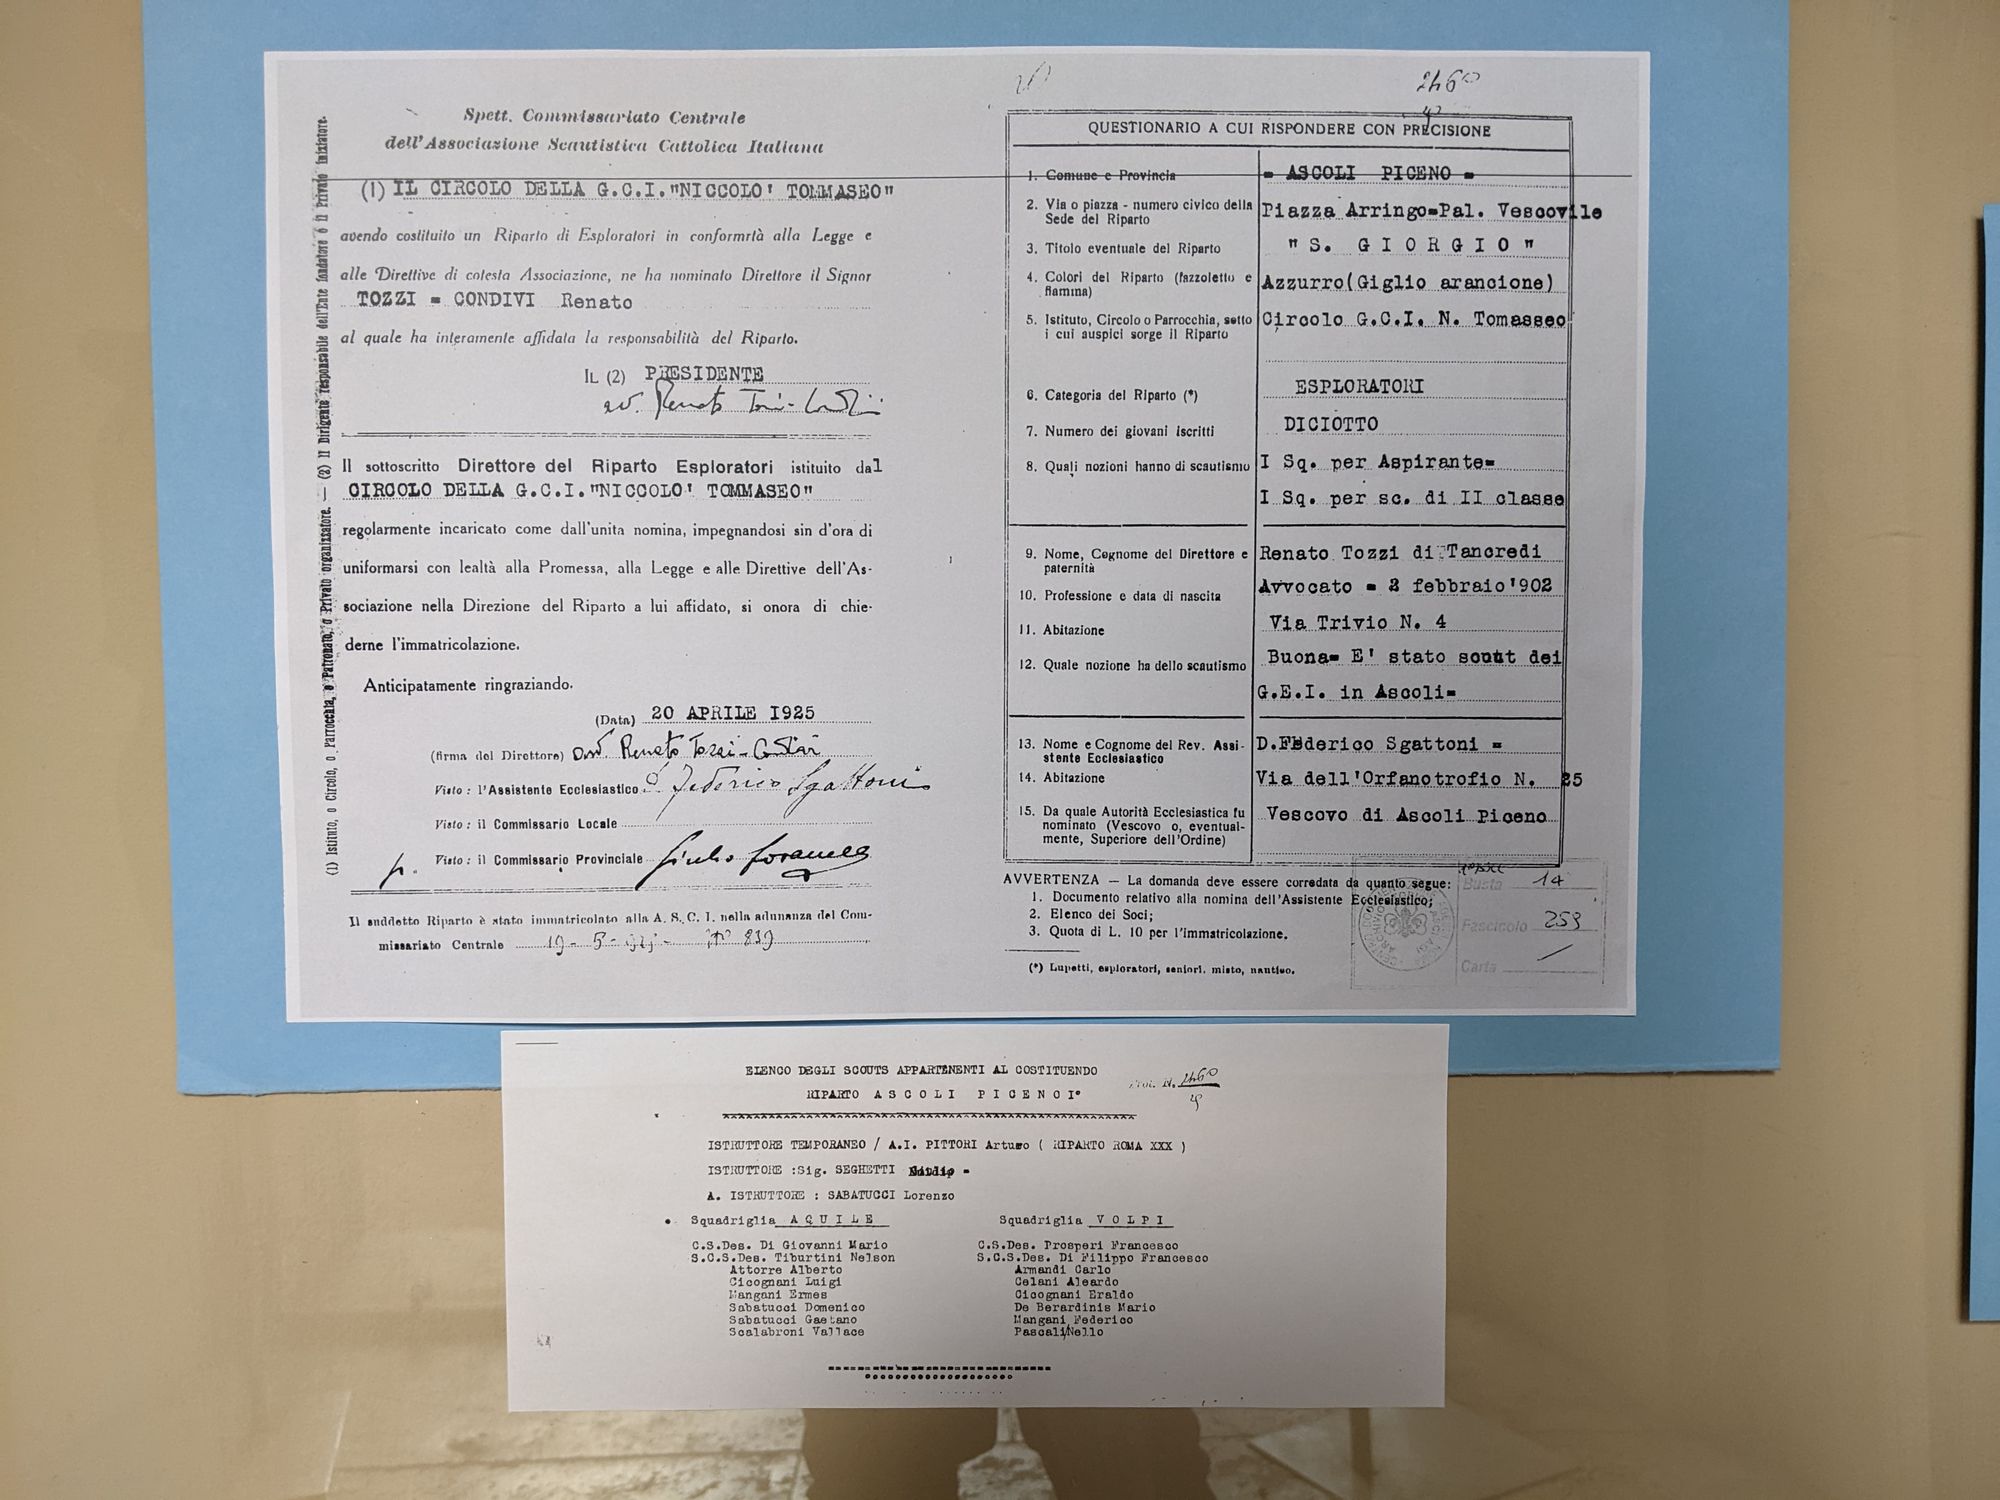 Spett. Commissariato Centrale
dell'Associazione Scautistica Cattolica Italiana
(1) IL CIRCOLO DELLA G.C.I."NICCOLO' TOMMASEO"
avendo costituito un Riparto di Esploratori in conformità alla Legge e
alle Direttive di cotesta Associazione, ne ha nominato Direttore il Signor
TOZZI = CONDIVI Renato
al quale ha interamente affidata la responsabilità del Riparto.
IL (2) PRESIDENTE
avv. Renato Tozzi-Condivi
Il sottoscritto Direttore del Riparto Esploratori istituito dal
CIRCOLO DELLA G.C.I."NICCOLO' TOMMASEO"
regolarmente incaricato come dall'unita nomina, impegnandosi sin d'ora di
uniformarsi con lealtà alla Promessa, alla Legge e alle Direttive dell'As-
sociazione nella Direzione del Riparto a lui affidato, si onora di chie-
derne l'immatricolazione.
Anticipatamente ringraziando.
(Data) 20 APRILE 1925
(firma del Direttore) avv. Renato Tozzi-Condivi
Visto: l'Assistente Ecclesiastico D. Federico Sgattoni
Visto: il Commissario Locale
p. Visto: il Commissario Provinciale Giulio
Il suddetto Riparto è stato immatricolato alla A. S. C. I. nella adunanza del Com-
missariato Centrale 19-5-925- N° 839
(1) Istituto, o Circolo, o Parrocchia, o Patronato, o Privato organizzatore. — (2) Il Dirigente responsabile dell'Ente fondatore o il Privato iniziatore.
2460
QUESTIONARIO A CUI RISPONDERE CON PRECISIONE
1. Comune e Provincia = ASCOLI PICENO =
2. Via o piazza - numero civico della Sede del Riparto Piazza Arringo=Pal. Vescovile
3. Titolo eventuale del Riparto "S. GIORGIO"
4. Colori del Riparto (fazzoletto e fiamma) Azzurro(Giglio arancione)
5. Istituto, Circolo o Parrocchia, sotto i cui auspici sorge il Riparto Circolo G.C.I. N. Tomasseo
6. Categoria del Riparto (*) ESPLORATORI
7. Numero dei giovani iscritti DICIOTTO
8. Quali nozioni hanno di scautismo I Sq. per Aspirante=
I Sq. per sc. di II classe
9. Nome, Cognome del Direttore e paternità Renato Tozzi di Tancredi
10. Professione e data di nascita Avvocato = 2 febbraio'902
11. Abitazione Via Trivio N. 4
12. Quale nozione ha dello scautismo Buona= E' stato scout dei
G.E.I. in Ascoli=
13. Nome e Cognome del Rev. Assi-
stente Ecclesiastico D.Federico Sgattoni =
14. Abitazione Via dell'Orfanotrofio N. 25
15. Da quale Autorità Ecclesiastica fu
nominato (Vescovo o, eventual-
mente, Superiore dell'Ordine) Vescovo di Ascoli Piceno
AVVERTENZA — La domanda deve essere corredata da quanto segue:
1. Documento relativo alla nomina dell'Assistente Ecclesiastico;
2. Elenco dei Soci;
3. Quota di L. 10 per l'immatricolazione.
(*) Lupetti, esploratori, seniori, misto, nautico.
Busta 14
Fascicolo 253
Carta
ELENCO DEGLI SCOUTS APPARTENENTI AL COSTITUENDO
RIPARTO ASCOLI PICENO I°
Prot. N. 2460
ISTRUTTORE TEMPORANEO / A.I. PITTORI Arturo ( RIPARTO ROMA XXX )
ISTRUTTORE :Sig. SEGHETTI =
A. ISTRUTTORE : SABATUCCI Lorenzo
Squadriglia AQUILE
C.S.Des. Di Giovanni Mario
S.C.S.Des. Tiburtini Nelson
Attorre Alberto
Cicognani Luigi
Mangani Ermes
Sabatucci Domenico
Sabatucci Gaetano
Scalabroni Vallace
Squadriglia VOLPI
C.S.Des. Prosperi Francesco
S.C.S.Des. Di Filippo Francesco
Armandi Carlo
Celani Aleardo
Cicognani Eraldo
De Berardinis Mario
Mangani Federico
Pascali/Nello